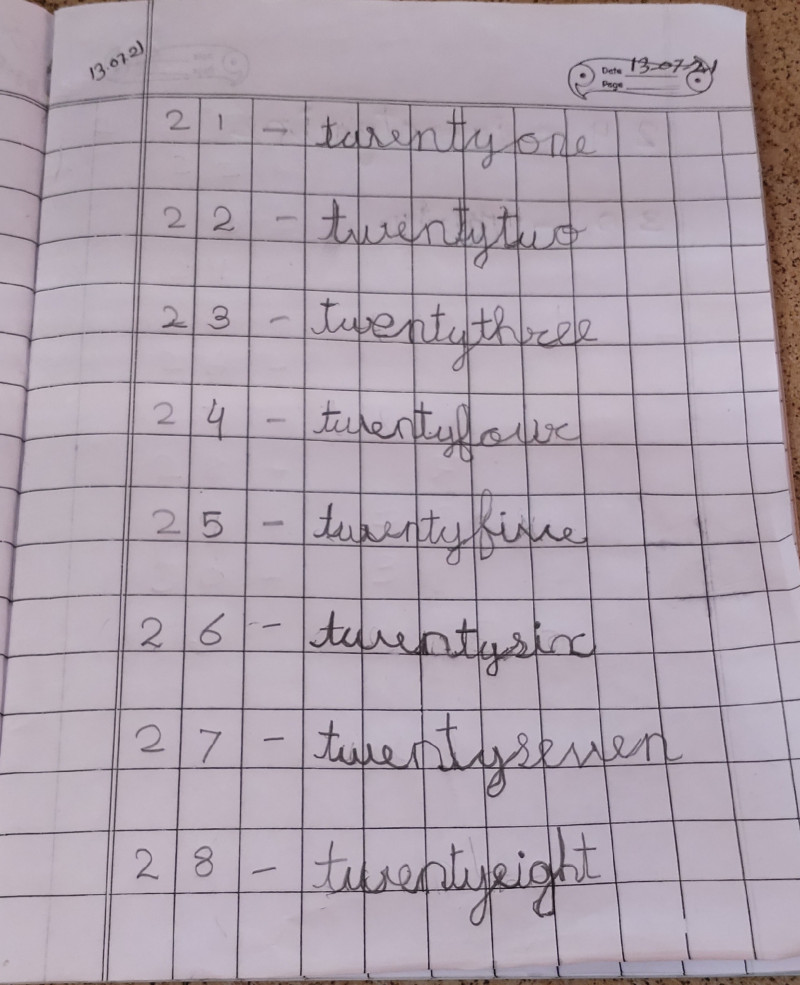 13.07.21
Date 13-07-21
Page
21 - twentyone
22 - twentytwo
23 - twentythree
24 - twentyfour
25 - twentyfive
26 - twentysix
27 - twentyseven
28 - twentyeight